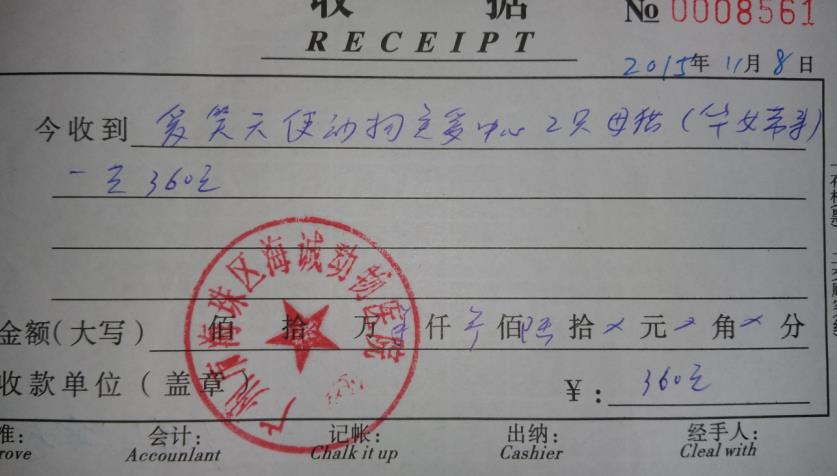 收 据 № 0008561
RECEIPT
2015年 11月 8日
今收到 爱笑天使动物宠爱中心 2只母猫(
360元
广州市海珠区海诚动物医院
金额(大写) 佰 拾 万 仟 佰 陆拾 元 角 分
收款单位(盖章) ¥: 360元
准: 会计: 记帐: 出纳: 经手人:
rove Accounlant Chalk it up Cashier Cleal with